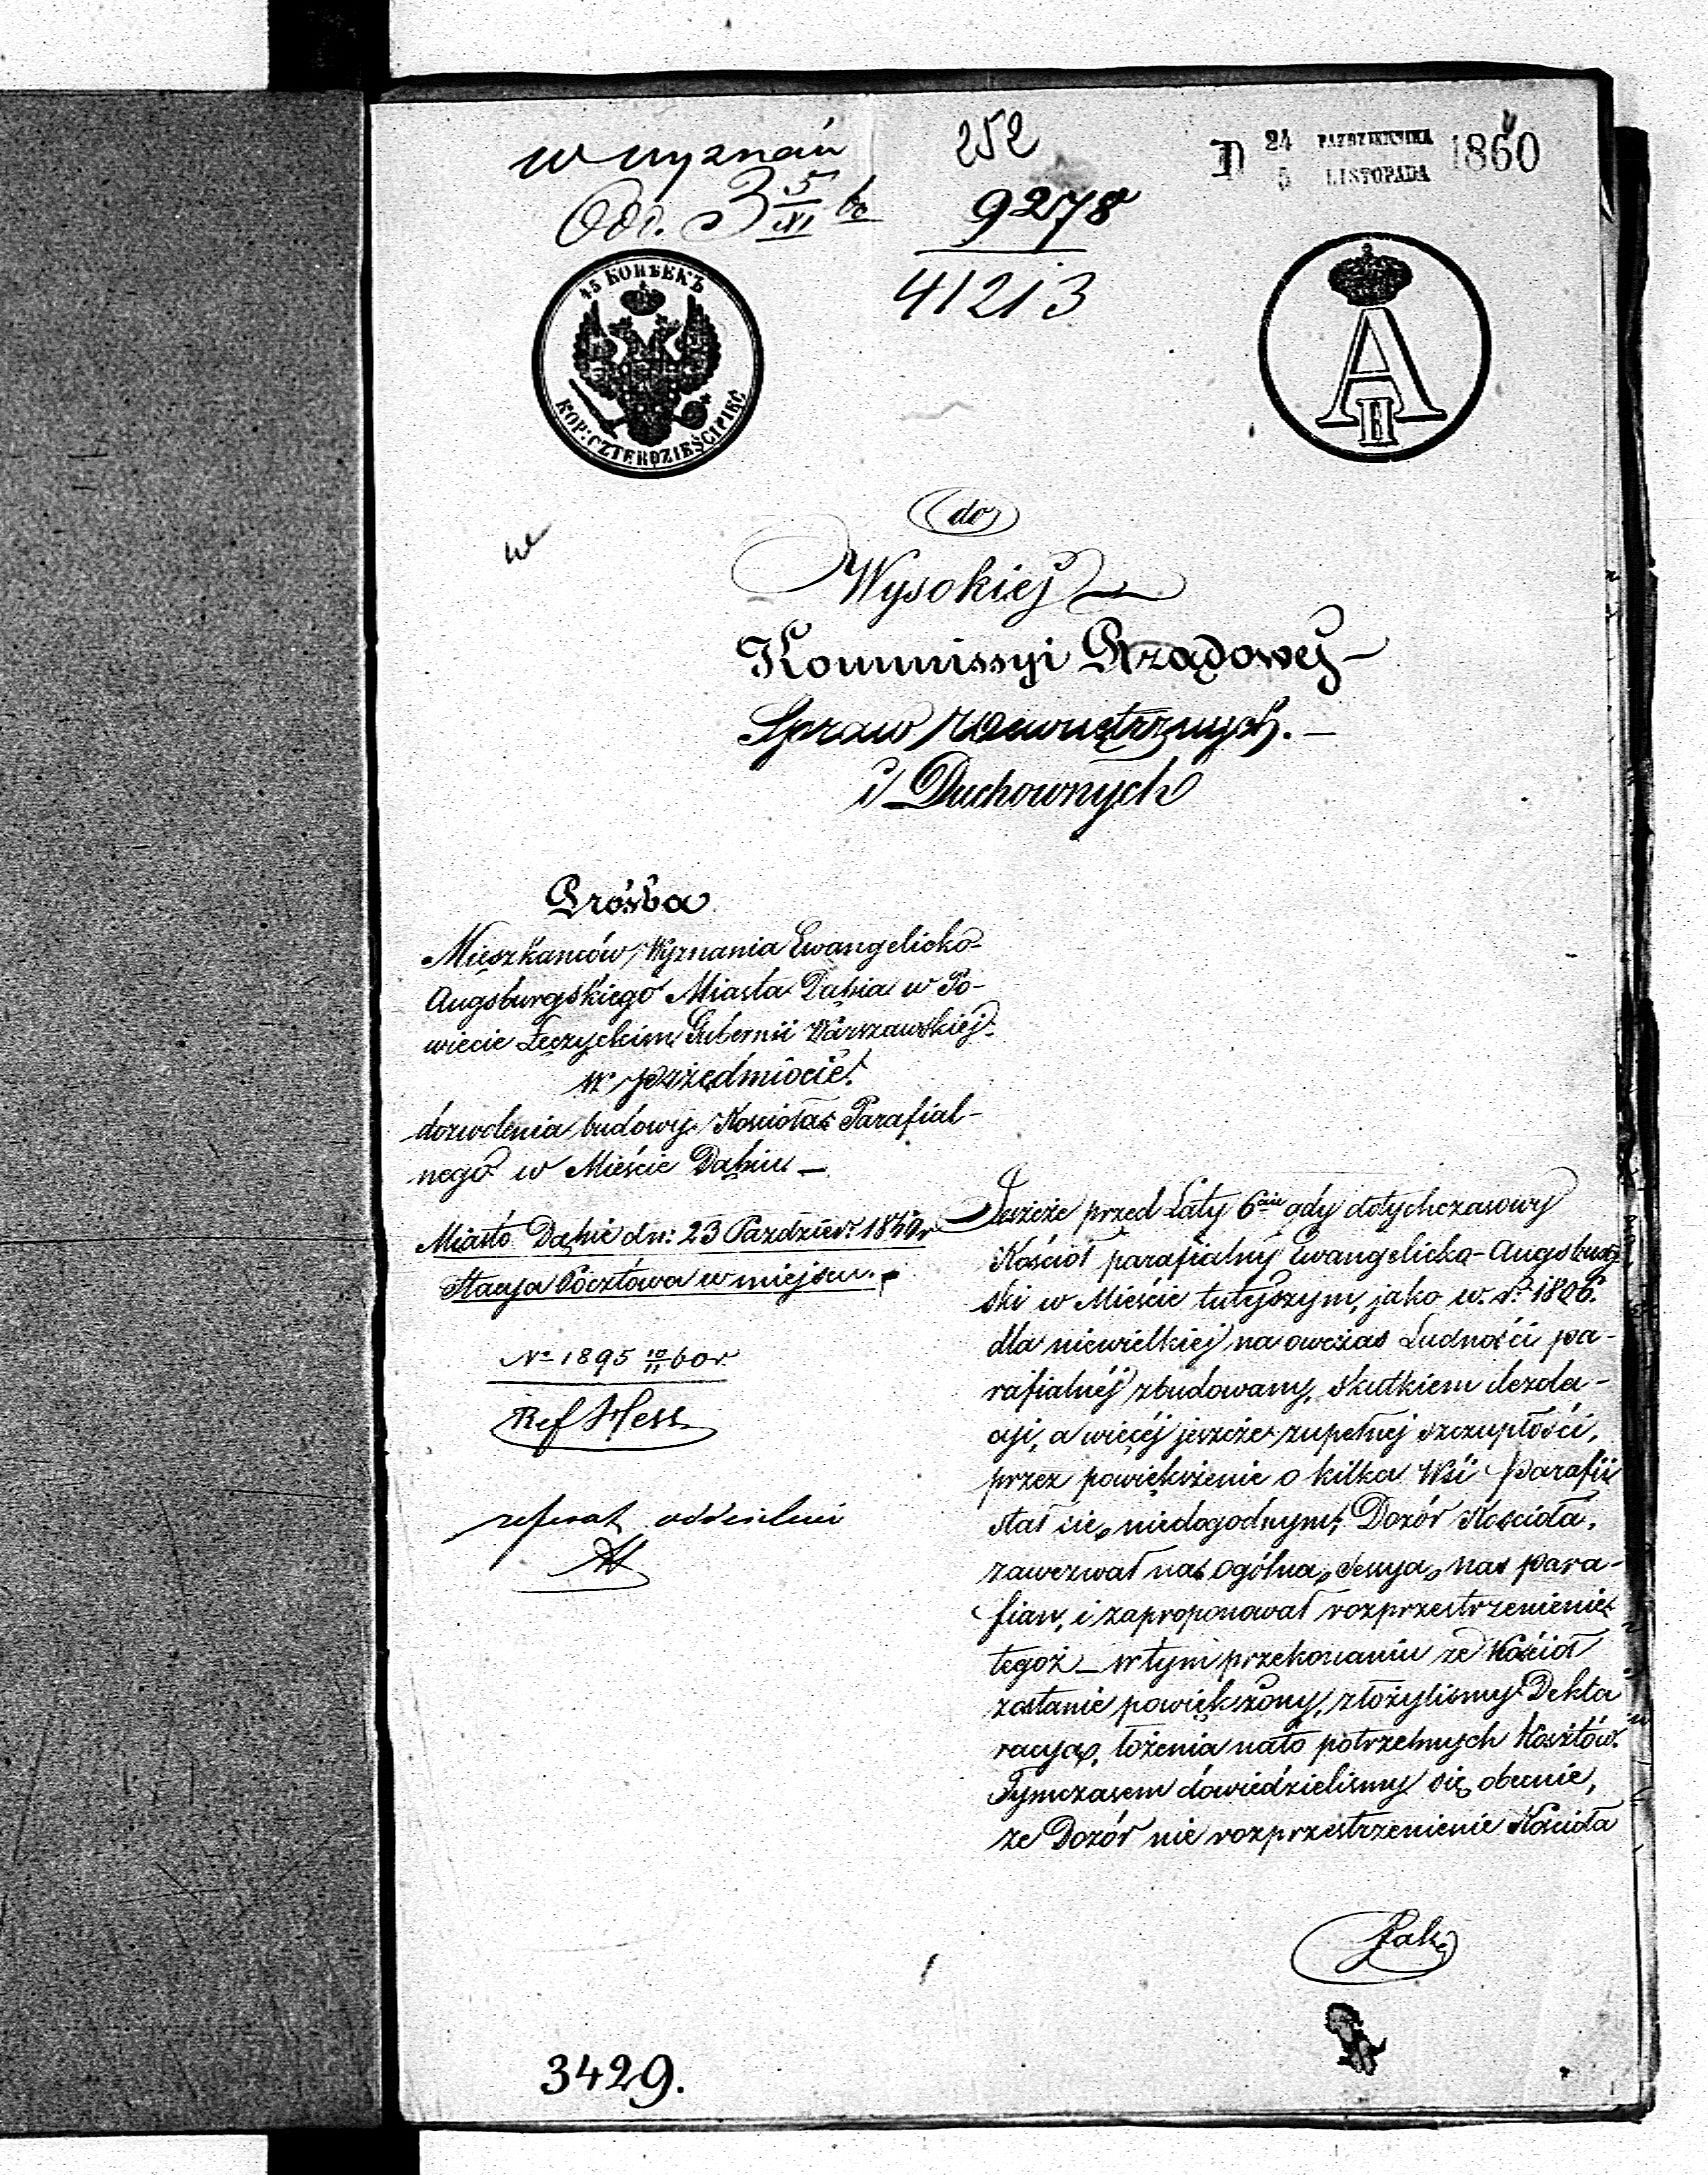 w wyznań
Odr. 3 5/XI
252
9278
41213
D 24 PAZDZIERNIKA 1860
5 LISTOPADA
45 КОПѢЕКЪ
KOP: CZTERDZIEŚCI PIĘĆ
A II
do
Wysokiej
Kommissyi Rządowej
Spraw Wewnętrznych.
i Duchownych
Prośba
Mieszkańców Wyznania Ewangelicko-
Augsburgskiego Miasta Dąbia w Po-
wiecie Łęczyckim Gubernii Warszawskiej.
w przedmiocie
dozwolenia budowy Kościoła Parafial-
nego w Mieście Dąbiu —
Miasto Dąbie dn: 23 Paździer:
Stacya Pocztowa w miejscu.
No 1895 10/11 60 r.
Ref Hess
referat
Jeszcze przed Laty 6ciu gdy dotychczasowy
Kościół parafialny Ewangelicko-Augsburg
ski w Mieście tutejszym, jako w. r. 1806.
dla niewielkiej na owczas Ludności pa-
rafialnéj zbudowany, skutkiem dezola-
cyi, a więcéj jeszcze zupełnej szczupłości,
przez powiększenie o kilka Wsi Parafii
stał się niedogodnym; Dozór Kościoła,
zawezwał nas ogólną Sessyą nas para-
fian, i zaproponował rozprzestrzenienie
tegoż — w tym przekonaniu że Kościół
zostanie powiększony, złożylismy Dekla
racyą, łożenia nato potrzebnych Kosztów.
Tymczasem dowiedzielismy się obecnie,
że Dozór nie rozprzestrzenienie Kościoła
3429.